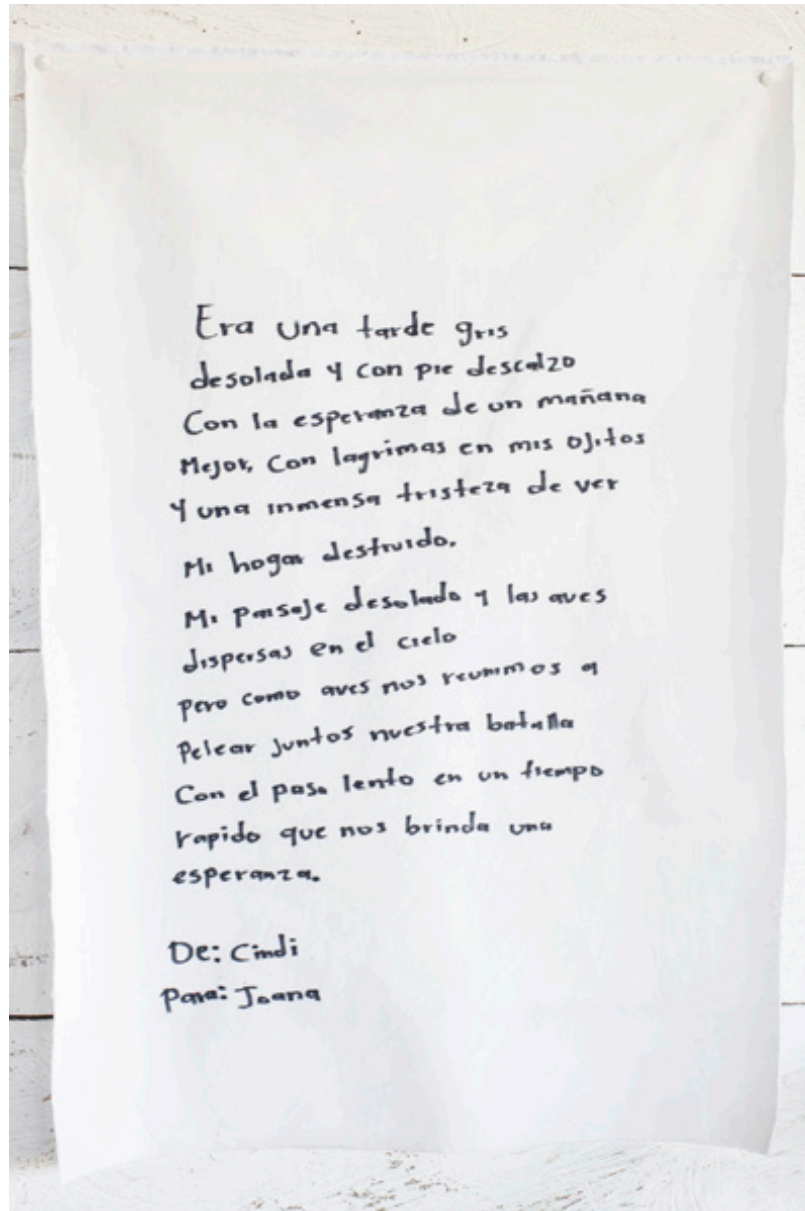 Era una tarde gris
desolada y con pie descalzo
Con la esperanza de un mañana
Mejor, Con lagrimas en mis ojitos
Y una inmensa tristeza de ver
Mi hogar destruido.
Mi paisaje desolado y las aves
dispersas en el cielo
pero como aves nos reunimos a
Pelear juntos nuestra batalla
Con el paso lento en un tiempo
rapido que nos brinda una
esperanza.
De: Cindi
Para: Joana